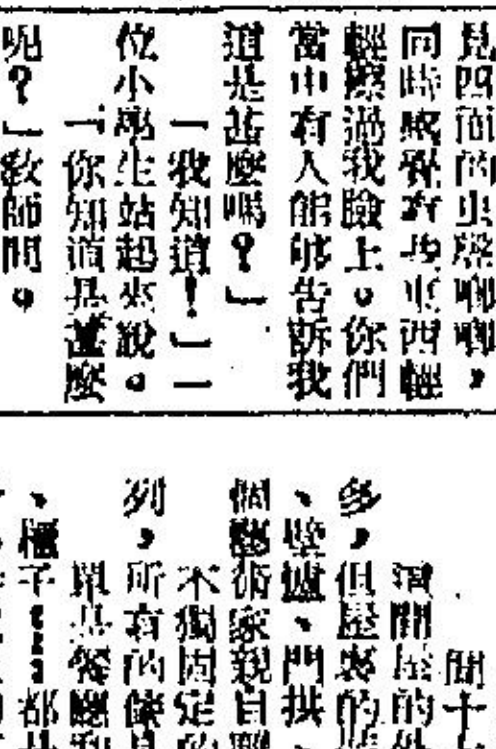 見四面的虫聲唧唧，
同時感覺有些東西輕
輕擦過我臉上。你們
當中有人能够告訴我
道是甚麼嗎？」
「我知道！」一
位小學生站起來說。
「你知道是甚麼
呢？」教師問。
間十
這間屋的外
多，但屋裏的
、壁爐、門拱
個藝術家親自
不獨固定的
列，所有的傢具
單是餐廳和
、櫃子……都